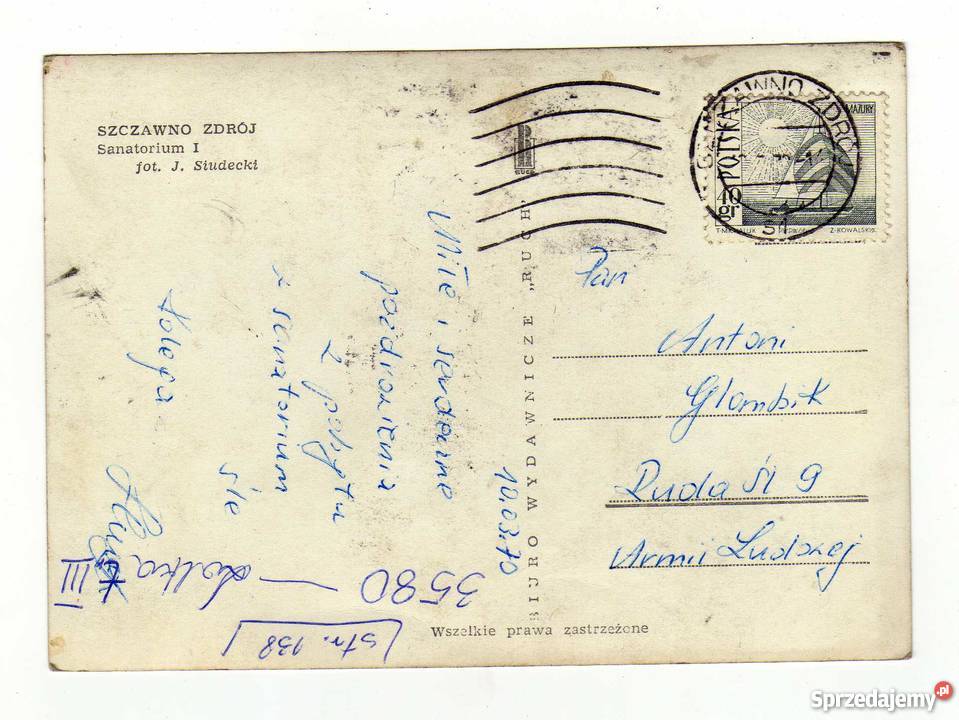 SZCZAWNO ZDRÓJ
Sanatorium I
fot. J. Siudecki
RUCH
SZCZAWNO ZDRÓJ
POLSKA
MAZURY
40 gr
Z. KOWALSKI
10.03.70
Miłe i serdeczne
pozdrowienia
z pobytu
w sanatorium
śle
kolega
BIURO WYDAWNICZE „RUCH”
Pan
Antoni
Glombik
Ruda Śl 9
Armii Ludowej
3580
III
str. 138
Wszelkie prawa zastrzeżone
Sprzedajemy.pl